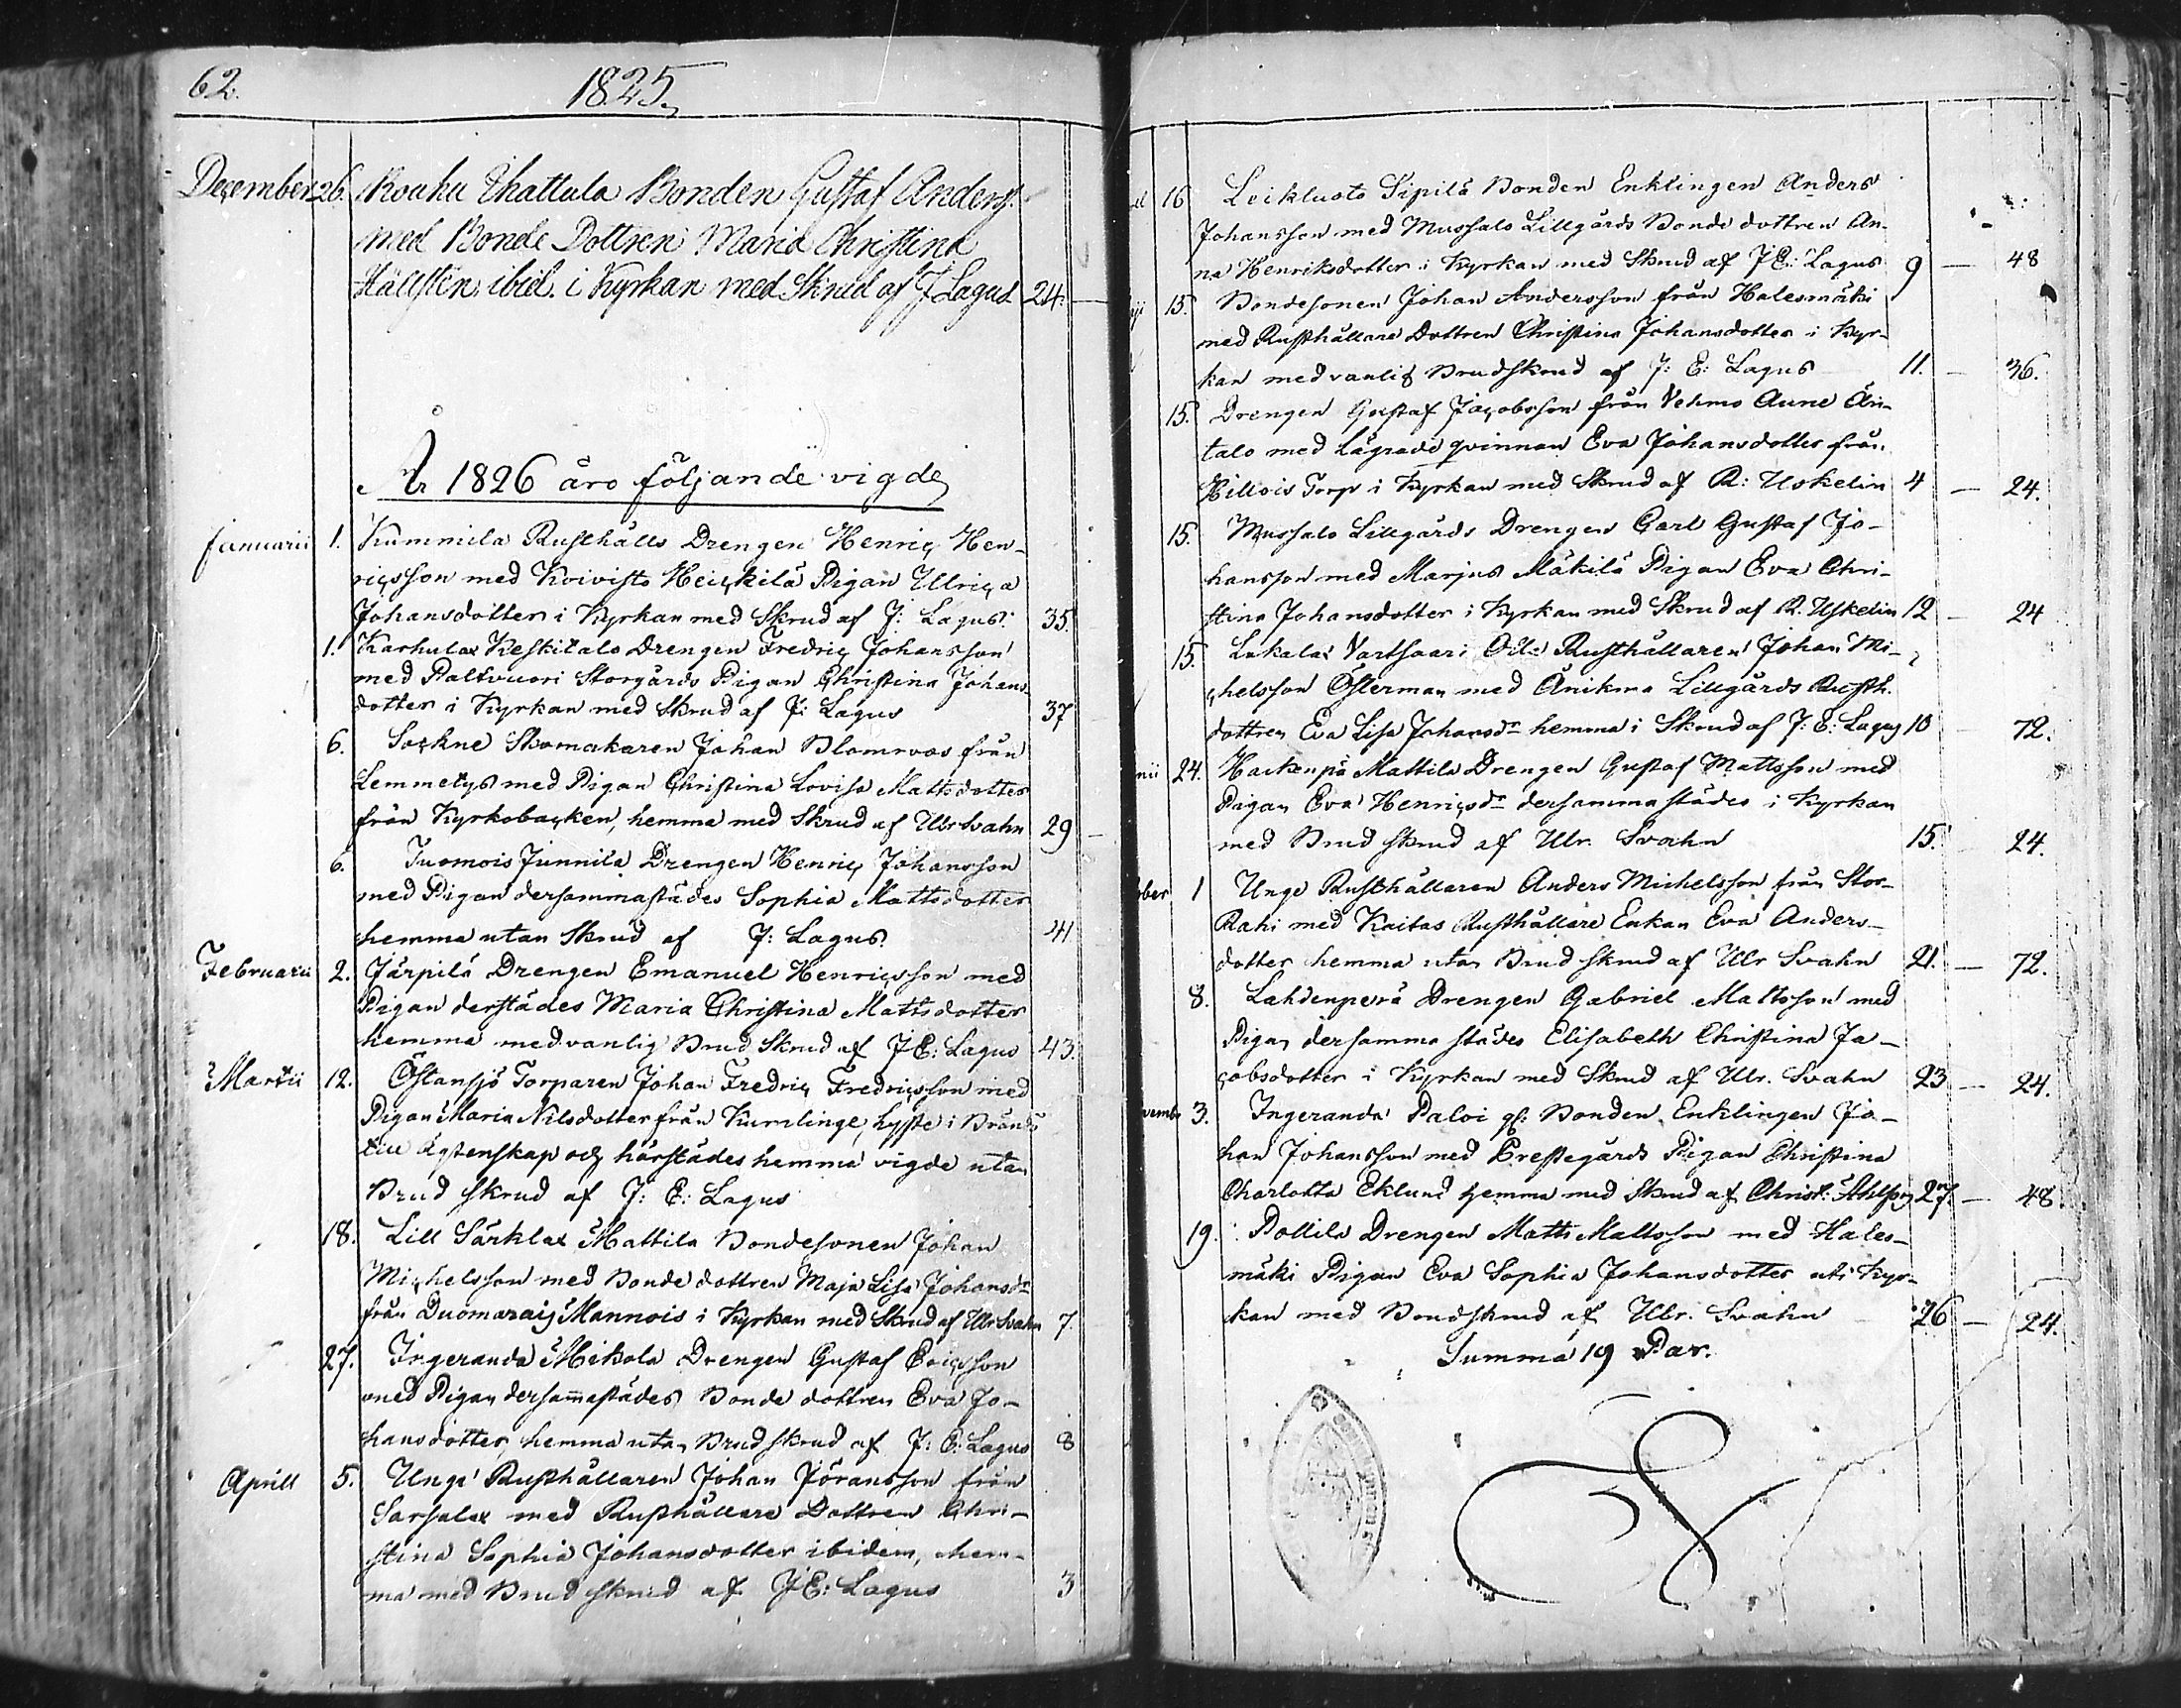 62.
1825.
December 26. Rouhu Ehattula Bonden Gustaf Anderss.
med Bonde Dottren Maria Christina
Hällstén, ibid. i Kyrkan med Skrud af J Lagus 24.
År 1826 äro följande vigde
Januarii 1. Kummila Rusthålls Drengen Henric Hen-
ricsson med Koivisto Heickilä Pigan Ulrica
Johansdotter i Kyrkan med Skrud af J: Lagus. 35.
1. Karhulax Keskitalo Drengen Fredric Johansson
med Paltvuori Storgårds Pigan Christina Johans-
dotter i Kyrkan med Skrud af J: Lagus 37
6. Sockne Skomakaren Johan Blomroos från
Lemmetys med Pigan Christina Lovisa Mattsdotter
från Kyrkobacken, hemma med Skrud af Ulr Svahn 29
6. Tuomois Junnila Drengen Henric Johansson
med Pigan dersammastädes Sophia Mattsdotter
hemma utan Skrud af J: Lagus. 41
Februarii 2. Järpilä Drengen Emanuel Henricsson med
Pigan derstädes Maria Christina Mattsdotter
hemma med vanlig Brud Skrud af J E: Lagus 43.
Martii 12. Östansjö Torparen Johan Fredric Fredricsson med
Pigan Maria Nilsdotter från Kumlinge, lyste i Brändö
till Ägtenskap och härstädes hemma vigde utan
Brud skrud af J: E: Lagus
18. Lill Särklax Mattila Bondesonen Johan
Michelsson med Bonde dottren Maja Lisa Johansdr
från Duomaraij Mannois i Kyrkan med Skrud af Ulr Svahn 7.
27. Ingeranda Mikola Drengen Gustaf Ericsson
med Pigan dersammastädes Bonde dottren Eva Jo-
hansdotter hemma utan Brud skrud af J: E: Lagus 8
Aprill 5. Unge Rusthållaren Johan Jöransson från
Sarsalax med Rusthållare Dottren Chri-
stina Sophia Johansdotter ibidem, hem-
ma med Brud skrud af J E: Lagus 3
16 Leikluoto Sipilä Bonden Enklingen Anders
Johansson med Mussalo Lillgårds Bonde dottren An-
na Henriksdotter i Kyrkan med Skrud af J E: Lagus 9 — 48
15. Bondesonen Johan Andersson från Halesmäki
med Rusthållare Dottren Christina Johansdotter i Kyr-
kan med vanlig Brudskrud af J: E: Lagus 11. — 36.
15. Drengen Gustaf Jacobsson från Vehmo Aune Än-
talo med Lägrade qvinnan Eva Johansdotter från
Hillois Torp i Kyrkan med Skrud af R: Uskelin 4 — 24.
15. Mussalo Lillgårds Drengen Carl Gustaf Jo-
hansson med Marjus Mäkilä Pigan Eva Chri-
stina Johansdotter i Kyrkan med Skrud af R. Uskelin 12 — 24
15. Lukalax Vartsaari Rusthållaren Johan Mi-
chelsson Österman med Änikma Lillgårds Rusth.
dottren Eva Lisa Johansdr hemma i Skrud af J: E: Lagus 10 — 72.
nii 24. Hackenpä Mattila Drengen Gustaf Mattsson med
Pigan Eva Henricsdr dersammastädes i Kyrkan
med Brud skrud af Ulr. Svahn 15. 24.
ober 1 Unge Rusthållaren Anders Michelsson från Stor-
Rahi med Kaitas Rusthållare Enkan Eva Anders-
dotter hemma utan Brud skrud af Ulr Svahn 21. — 72.
8. Lahdenperä Drengen Gabriel Mattsson med
Pigan dersamma städes Elisabeth Christina Ja-
cobsdotter i Kyrkan med Skrud af Ulr. Svahn 23 — 24.
vembr 3. Ingeranda Paloi Bonden Enklingen Jo-
han Johansson med Prestegårds Pigan Christina
Charlotta Eklund hemma med Skrud af Christ: 27. — 48.
19. Pollila Drengen Matts Mattsson med Hales-
mäki Pigan Eva Sophia Johansdotter uti Kyr-
kan med Brudskrud af Ulr. Svahn 26 — 24.
Summa 19 Par.